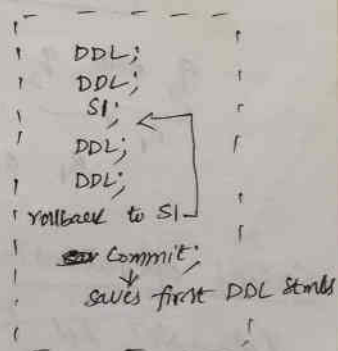 DDL;
DDL;
S1;
DDL;
DDL;
rollback to S1
Commit;
saves first DDL stmts